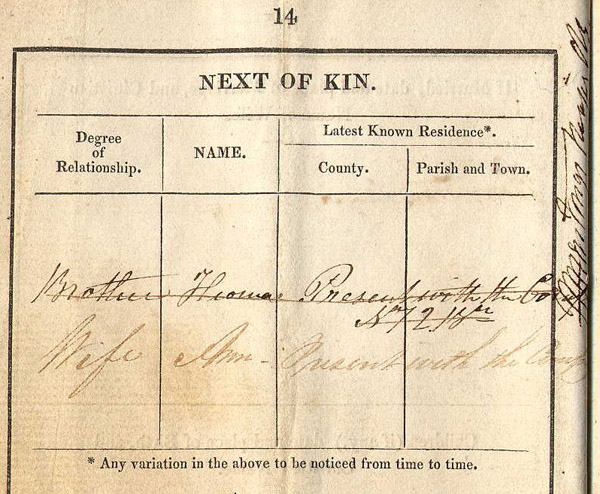 14
NEXT OF KIN.
Degree of Relationship.
NAME.
Latest Known Residence*.
County.
Parish and Town.
Brother Thomas Present with the
Wife Ann - Present with the
* Any variation in the above to be noticed from time to time.